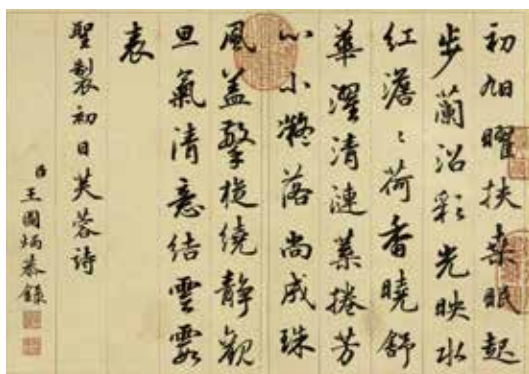 初旭曜扶桑眠起
步蘭沼彩光映水
紅澹〻荷香曉舒
華濯清漣葉捲芳
心小凝落尚成珠
風蓋擎旋繞靜觀
旦氣清意結雲霞
表
聖製初日芙蓉詩
臣王圖炳恭錄